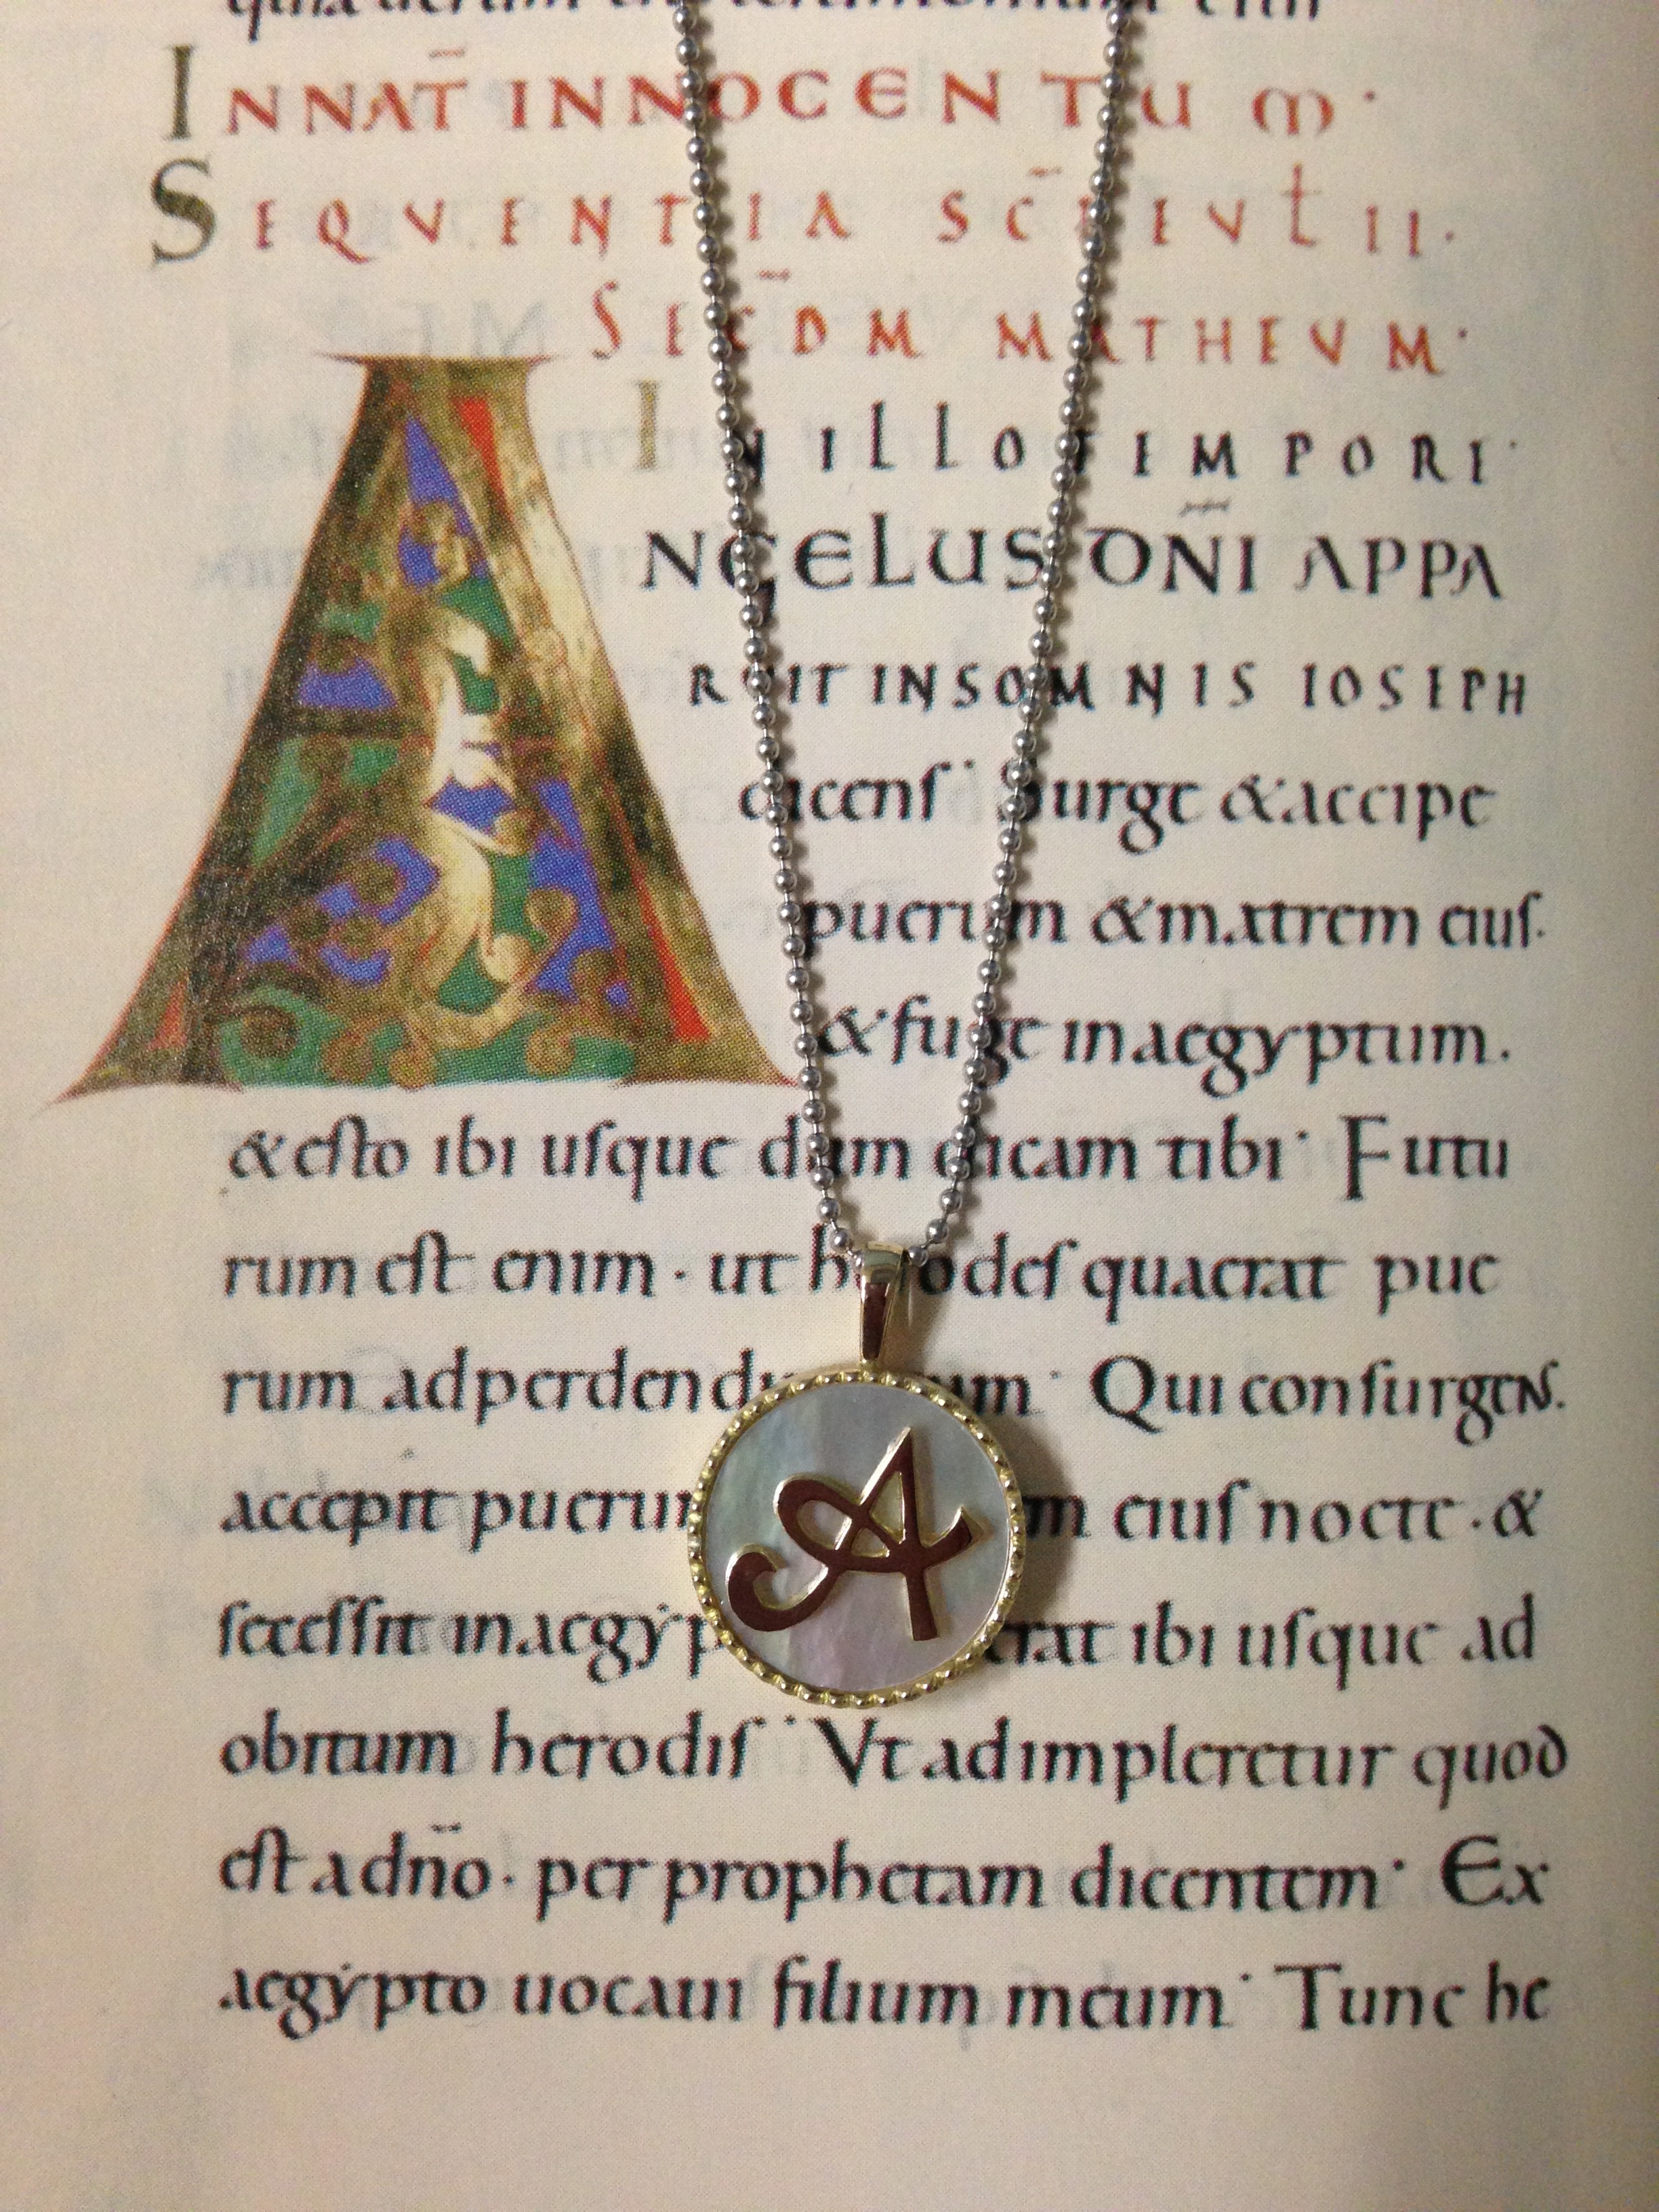 INNAT̄ INNOCENTUM·
SEQVENTIA SC̄I EVƚII·
SEC̄DM MATHEVM·
IN ILLO TIMPORI·
ANGELUS DN̄I APPA
RUIT IN SOMNIS IOSEPH
dicens· Surge & accipe
puerum & matrem eius·
& fuge in aegyptum.
& esto ibi usque dum dicam tibi· Futu
rum est enim· ut herodes quaerat pue
rum ad perdendum eum· Qui consurgens.
accepit puerum eius nocte· &
secessit in aegẏp erat ibi usque ad
obitum herodis· Vt adimpleretur quod
est a dn̄o· per prophetam dicentem· Ex
aegẏpto uocaui filium meum· Tunc he
A